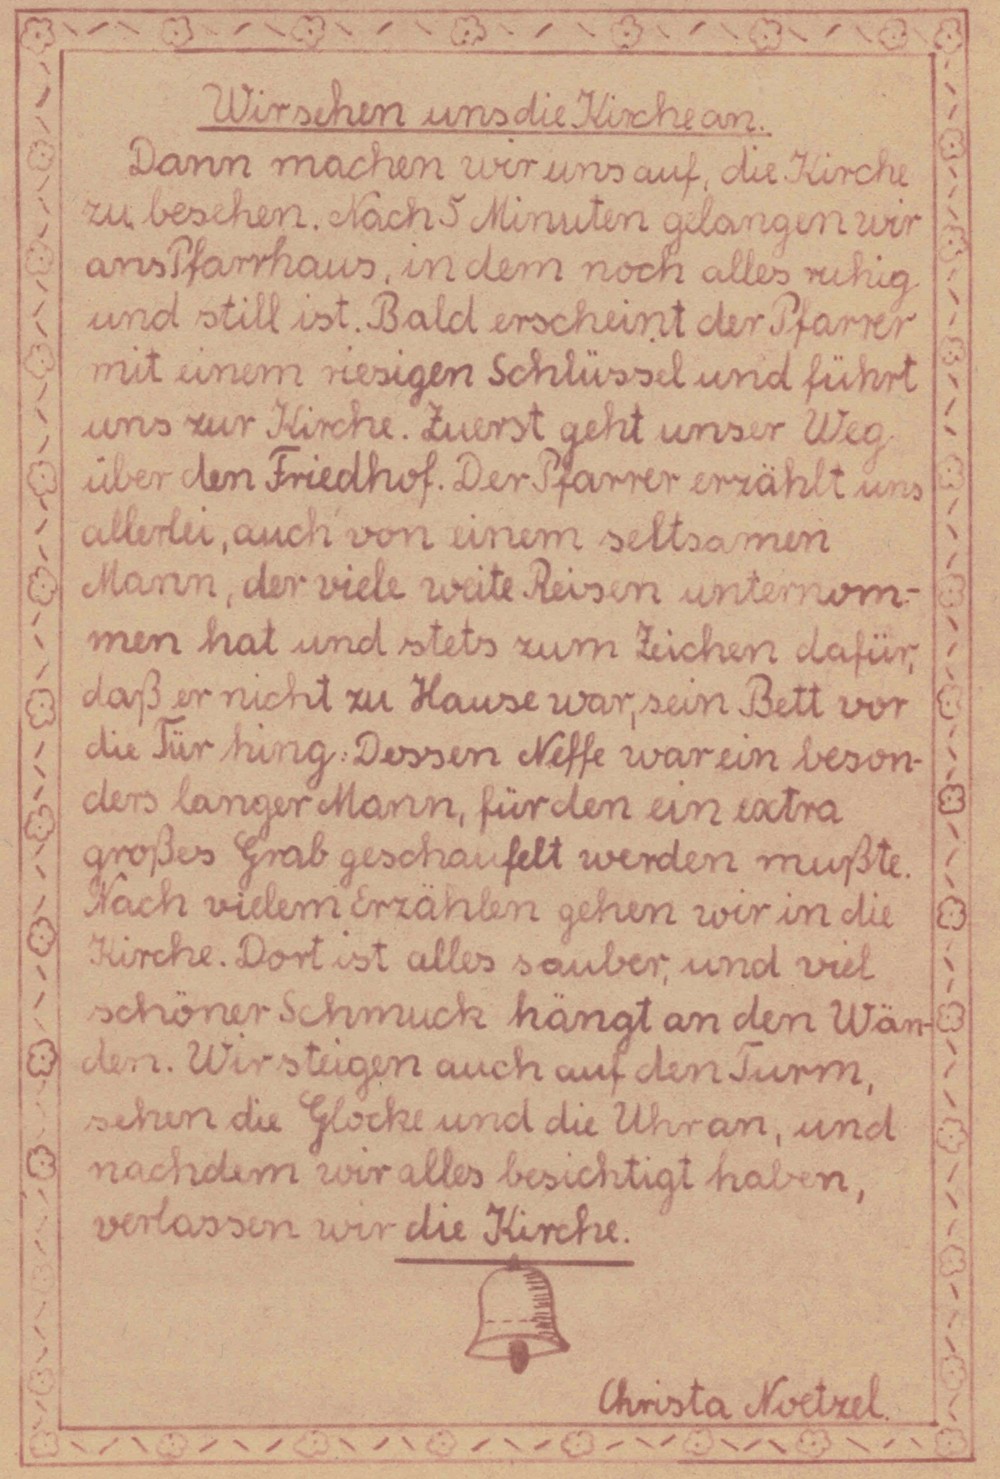 Wir sehen uns die Kirche an.
Dann machen wir uns auf, die Kirche
zu besehen. Nach 5 Minuten gelangen wir
ans Pfarrhaus, in dem noch alles ruhig
und still ist. Bald erscheint der Pfarrer
mit einem riesigen Schlüssel und führt
uns zur Kirche. Zuerst geht unser Weg
über den Friedhof. Der Pfarrer erzählt uns
allerlei, auch von einem seltsamen
Mann, der viele weite Reisen unternom-
men hat und stets zum Zeichen dafür,
daß er nicht zu Hause war, sein Bett vor
die Tür hing. Dessen Neffe war ein beson-
ders langer Mann, für den ein extra
großes Grab geschaufelt werden mußte.
Nach vielem Erzählen gehen wir in die
Kirche. Dort ist alles sauber, und viel
schöner Schmuck hängt an den Wän-
den. Wir steigen auch auf den Turm,
sehen die Glocke und die Uhr an, und
nachdem wir alles besichtigt haben,
verlassen wir die Kirche.
Christa Noetzel.